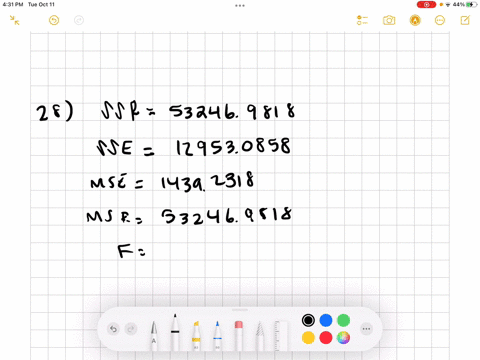 4:31 PM Tue Oct 11
44%
28) SSR = 53246.9818
SSE = 12953.0858
MSE = 1439.2318
MSR = 53246.9818
F =